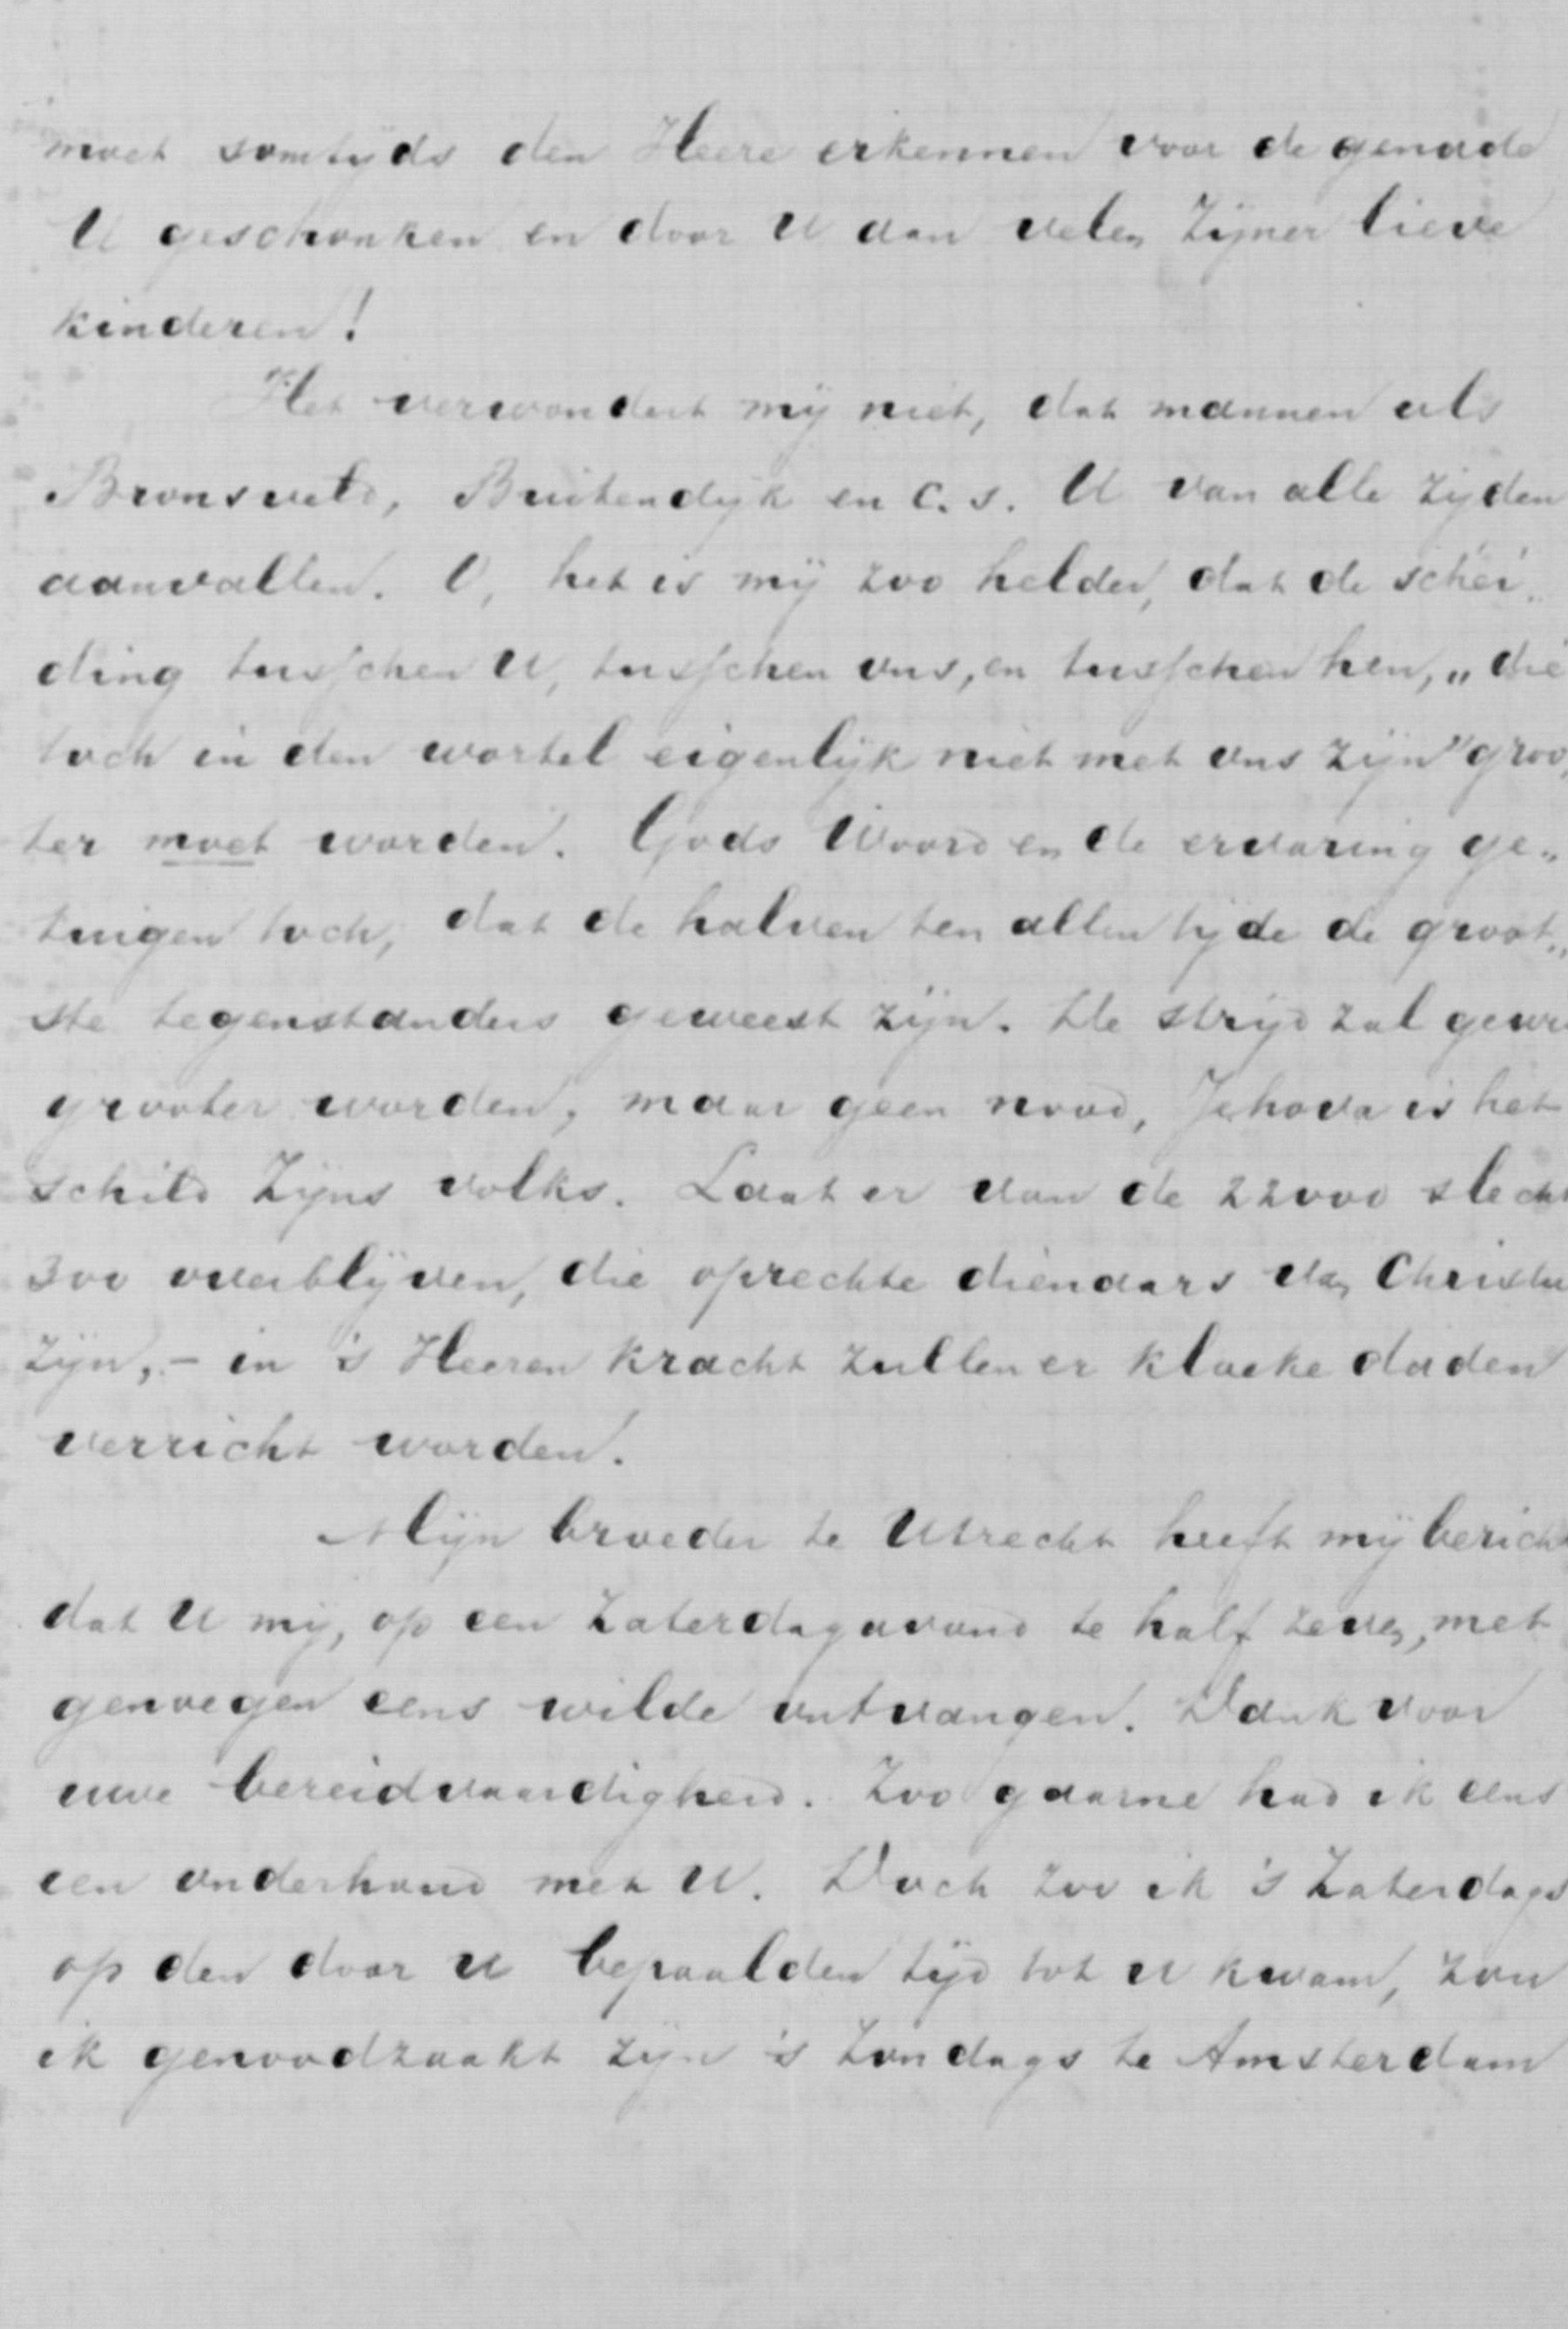 moet somtijds den Heere erkennen voor de genade
U geschonken en door U aan velen Zijner lieve
kinderen!
Het verwondert mij niet, dat mannen als
Bronsveld, Buitendijk en c. s. U van alle zijden
aanvallen. O, het is mij zoo helder, dat de schei„
ding tusschen U, tusschen ons, en tusschen hen, „die
toch in den wortel eigenlijk niet met ons zijn" groo„
ter moet worden. Gods Woord en de ervaring ge„
tuigen toch, dat de halven ten allen tijde de groot„
ste tegenstanders geweest zijn. De strijd zal gewis
grooter worden, maar geen nood, Jehova is het
schild Zijns volks. Laat er van de 22000 slechts
300 overblijven, die oprechte dienaars van Christus
zijn, - in 's Heeren kracht zullen er kloeke daden
verricht worden.
Mijn broeder te Utrecht heeft mij bericht
dat U mij, op een Zaterdagavond te half zeven, met
genoegen eens wilde ontvangen. Dank voor
uwe bereidvaardigheid. Zoo gaarne had ik eens
een onderhoud met U. Doch zoo ik 's Zaterdags
op den door U bepaalden tijd tot U kwam, zou
ik genoodzaakt zijn 's Zondags te Amsterdam